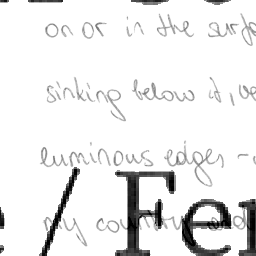 on or in the surfa
sinking below it, ve
luminous edges -
my country and
e / Fer